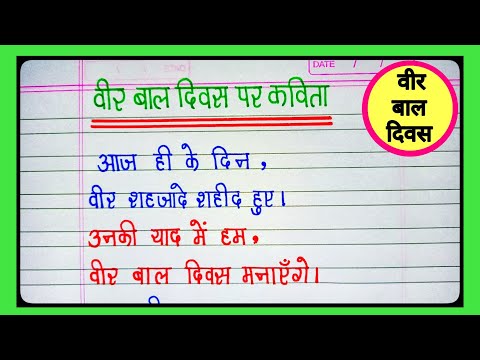 DATE / /
वीर बाल दिवस पर कविता
वीर
बाल
दिवस
आज ही के दिन,
वीर शहजादे शहीद हुए।
उनकी याद में हम,
वीर बाल दिवस मनाएँगे।